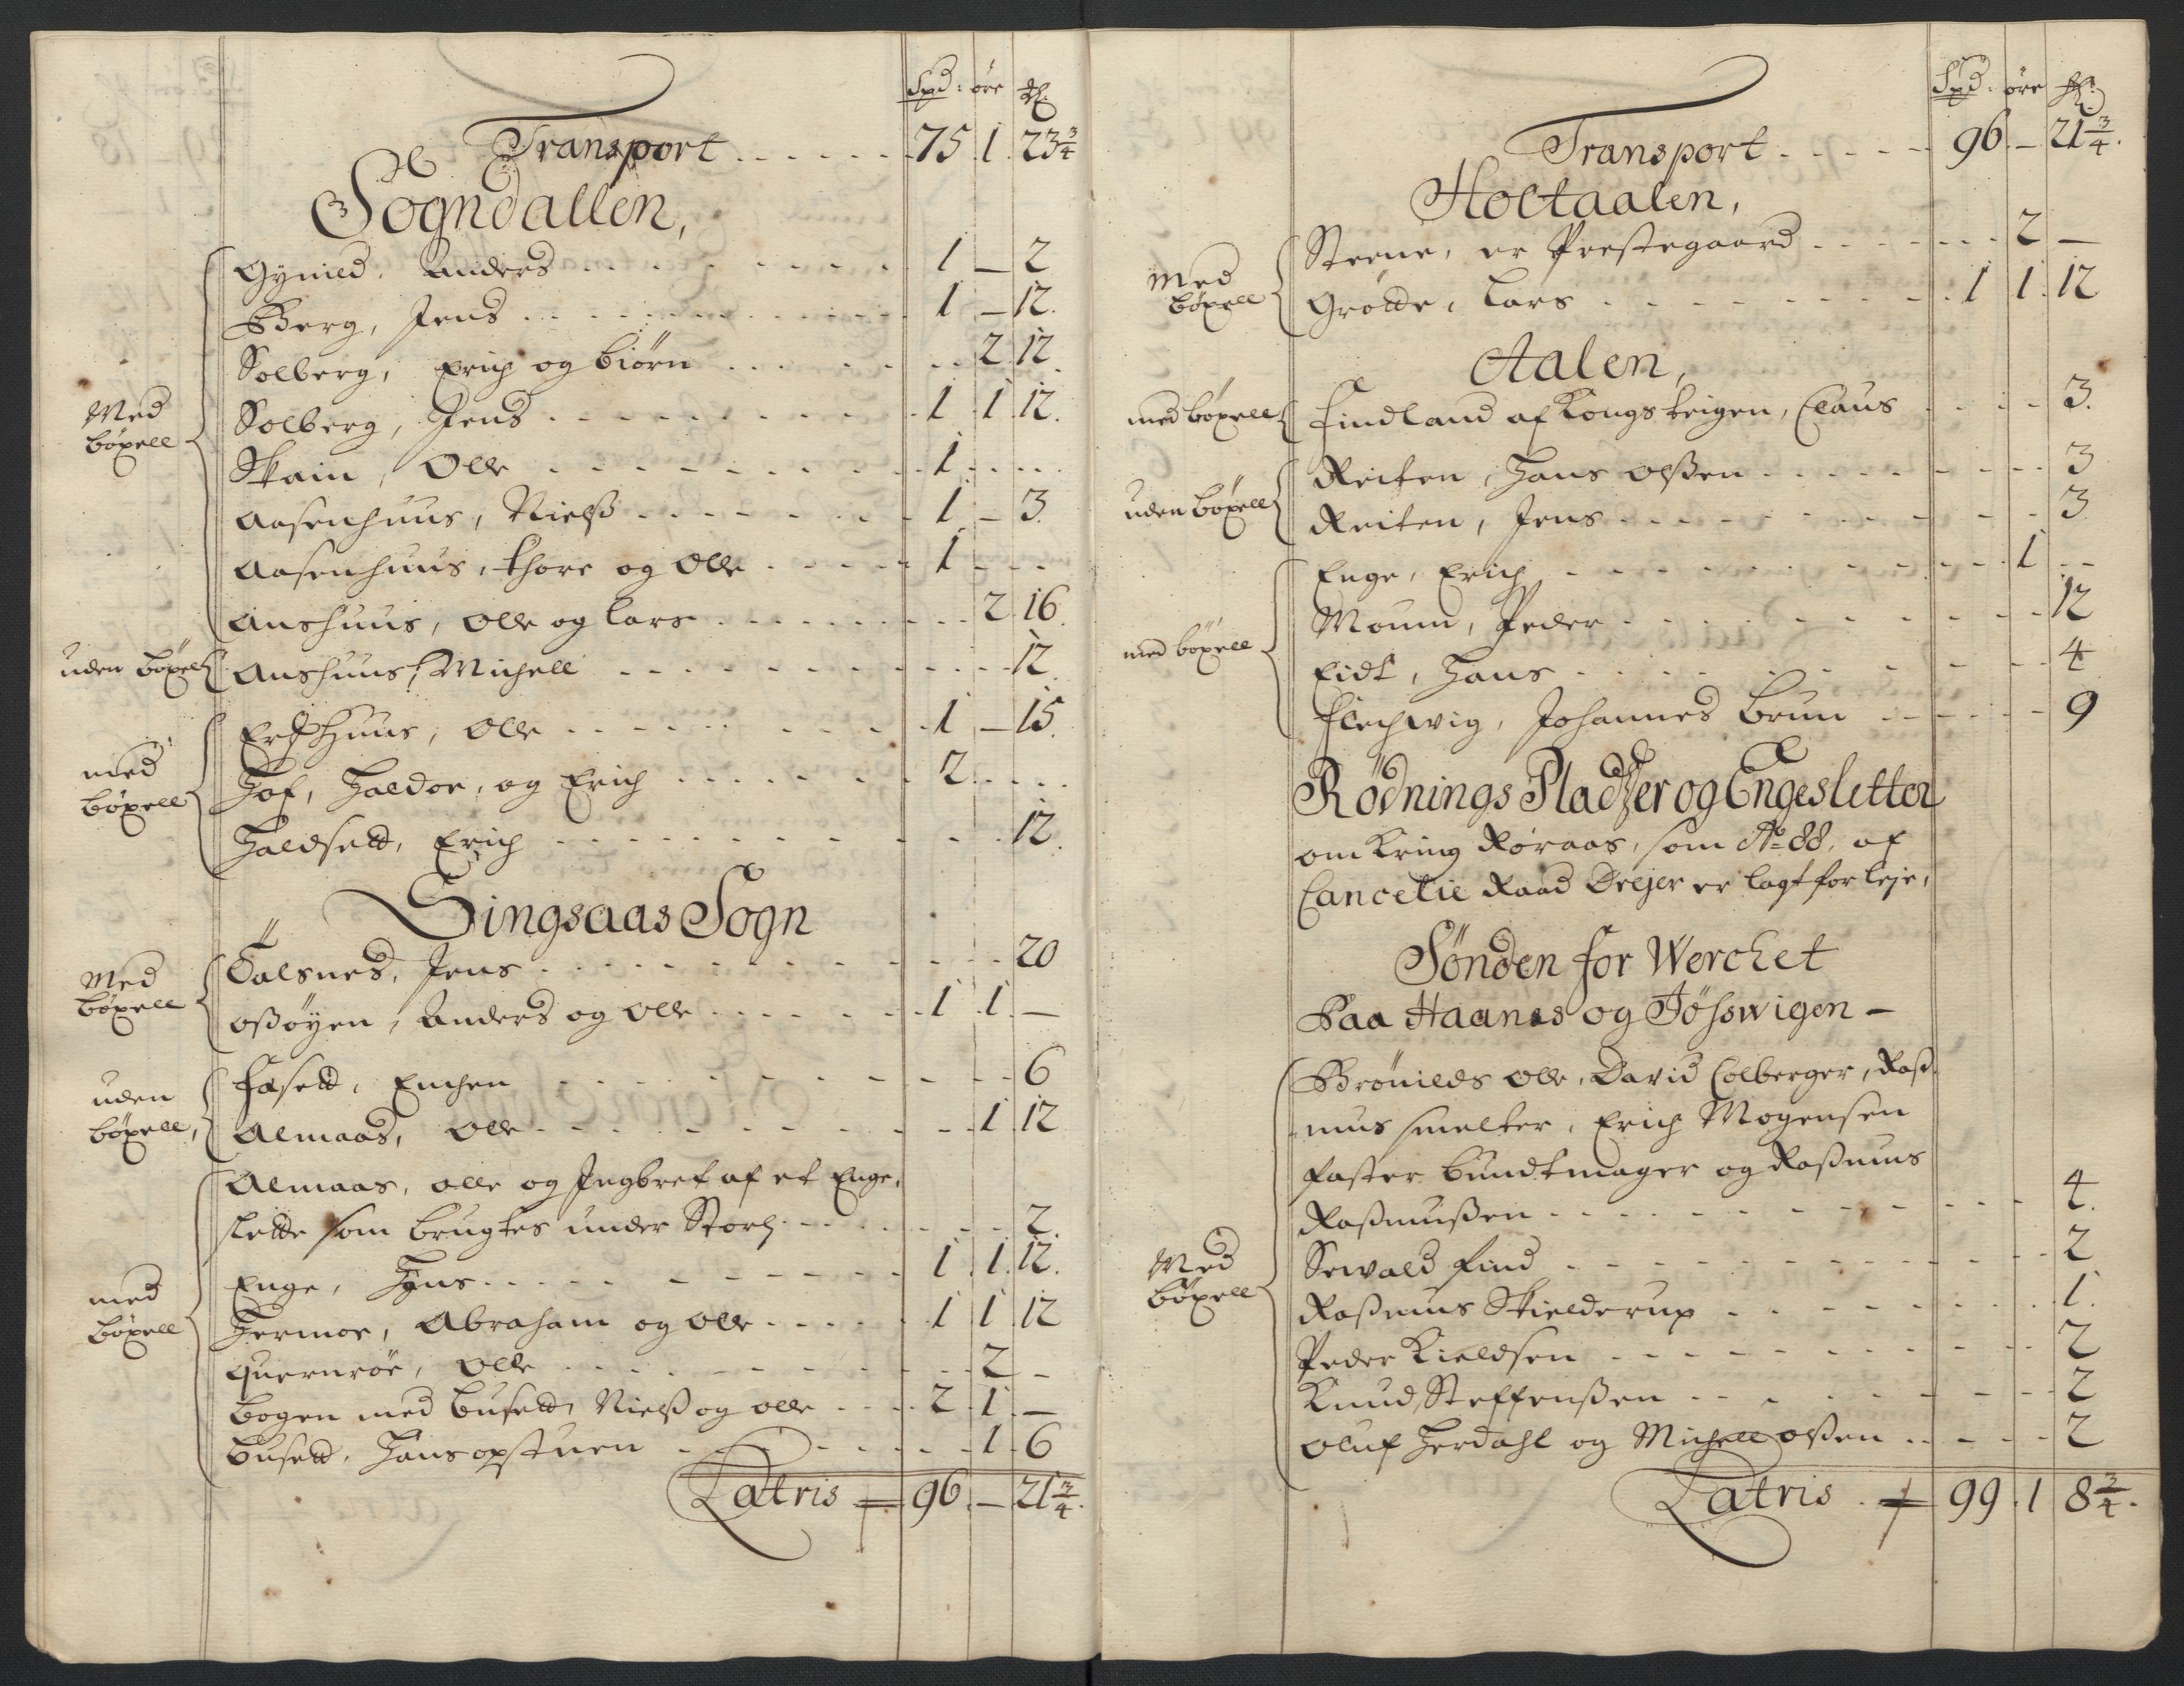 Spd: øre
Transport 75 1 23 3/4
Sogndallen,
Med
böxell
Gynild, Anders 1 — 2
Berg, Jens 1 — 12.
Solberg, Erich og Biörn 2 12
Solberg, Jens 1 1 12.
Skain, Olle 1
Aasenhuus, Nielß 1 — 3.
Aasenhuus, Thore og Olle 1 - -
Aushuus, Olle og Lars 2 16.
uden böxell Aushuus, Michell 12.
med
böxell
Olle 1 — 15.
Hof, Haldor, og Erich 2
Haldsett, Erich 12.
Singsaas Sogn
Med
böxell
Talsnes, Jens 20
Oßöyen, Anders og Olle 1 1 —
uden
böxell,
Fasett, Enchen 6
Almaas, Olle 1 12
med
böxell
Almaas, Olle og Ingbret af et Enge,
slette som brugtes under Storl
2.
Enge, Jens 1 1 12.
Hermoe, Abraham og Olle 1 1 12
Quernröe, Olle 2 -
Bogen med Busett, Nielß og Olle 2 1 —
Busett, Hans opstuen 1 6
Latris 96 — 21 3/4.
Spd: øre
Transport 96 — 21 3/4.
Holtaalen,
Med
böxell
Steene, er Prestegaard 2 —
Grötte, Lars 1 1 12
Aalen,
med böxell Findland af Kongs teigen, Claus 3.
uden böxell
Reiten, Hans Olßen 3
Reiten, Jens 3
med böxell
Enge, Erich 1 - -
Moum, Peder 12
Eidt, Hans 4
Flechwig, Johannes Brun 9
Rödnings Pladzer og Engesletter
omkring Röraas, som Ao 88, af
Cancelie Raad Dreyer er lagt for leje,
Sönden for Werchet
Paa Haanes og Föhswigen —
Med
böxell
Brönilds Olle, David Colberger, Raß-
mus smelter, Erich Mogensen
Faster Bundtmager og Raßmus
Raßmußen 4.
Sewald Find 2
Raßmus Skielderup 1.
Peder Kieldsen 2
Knud Steffenßen 2
Oluf Herdahl og Michell Olßen 2
Latris 99 1 8 3/4.